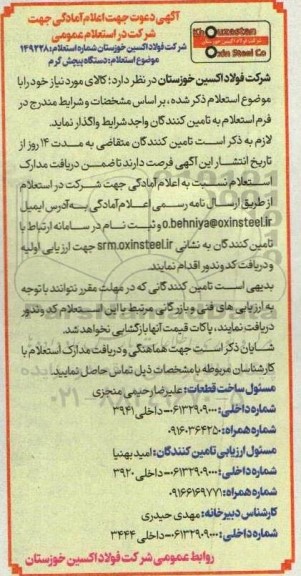 آگهی دعوت جهت اعلام آمادگی جهت
شرکت در استعلام عمومی
شرکت فولاد اکسین خوزستان شماره استعلام: ۱۴۹۲۳۸
موضوع استعلام: دستگاه پیچش گرم
Khouzestan
شرکت فولاد اکسین خوزستان
Oxin Steel Co
شرکت فولاد اکسین خوزستان در نظر دارد؛ کالای مورد نیاز خود را با
موضوع استعلام ذکر شده، بر اساس مشخصات و شرایط مندرج در
فرم استعلام به تامین کنندگان واجد شرایط واگذار نماید.
لازم به ذکر است تامین کنندگان متقاضی به مدت ۱۴ روز از
تاریخ انتشار این آگهی فرصت دارند تا ضمن دریافت مدارک
استعلام نسبت به اعلام آمادگی جهت شرکت در استعلام
از طریق ارسال نامه رسمی اعلام آمادگی به آدرس ایمیل
o.behniya@oxinsteel.ir و ثبت نام در سامانه ارتباط با
تامین کنندگان به نشانی srm.oxinsteel.ir جهت ارزیابی اولیه
و دریافت کد وندور اقدام نمایند.
بدیهی است تامین کنندگانی که در مهلت مقرر نتوانند با توجه
به ارزیابی های فنی و بازرگانی مرتبط با این استعلام کد وندور
دریافت نمایند، پاکات قیمت آنها بازگشایی نخواهد شد.
شایان ذکر است جهت هماهنگی و دریافت مدارک استعلام با
کارشناسان مربوطه با مشخصات ذیل تماس حاصل نمایید.
مسئول ساخت قطعات: علیرضا حبی منجزی
شماره داخلی: ۰۶۱۳۲۹۰۹۰۰۰-داخلی ۳۹۴۱
شماره همراه: ۰۹۱۶۰۳۶۴۲۵۰
مسئول ارزیابی تامین کنندگان: امید بهنیا
شماره داخلی: ۰۶۱۳۲۹۰۹۰۰۰-داخلی ۳۹۲۰
شماره همراه: ۰۹۱۶۶۱۶۹۷۷۱
کارشناس دبیرخانه: مهدی حیدری
شماره داخلی: ۰۶۱۳۲۹۰۹۰۰۰-داخلی ۳۴۴۴
روابط عمومی شرکت فولاد اکسین خوزستان